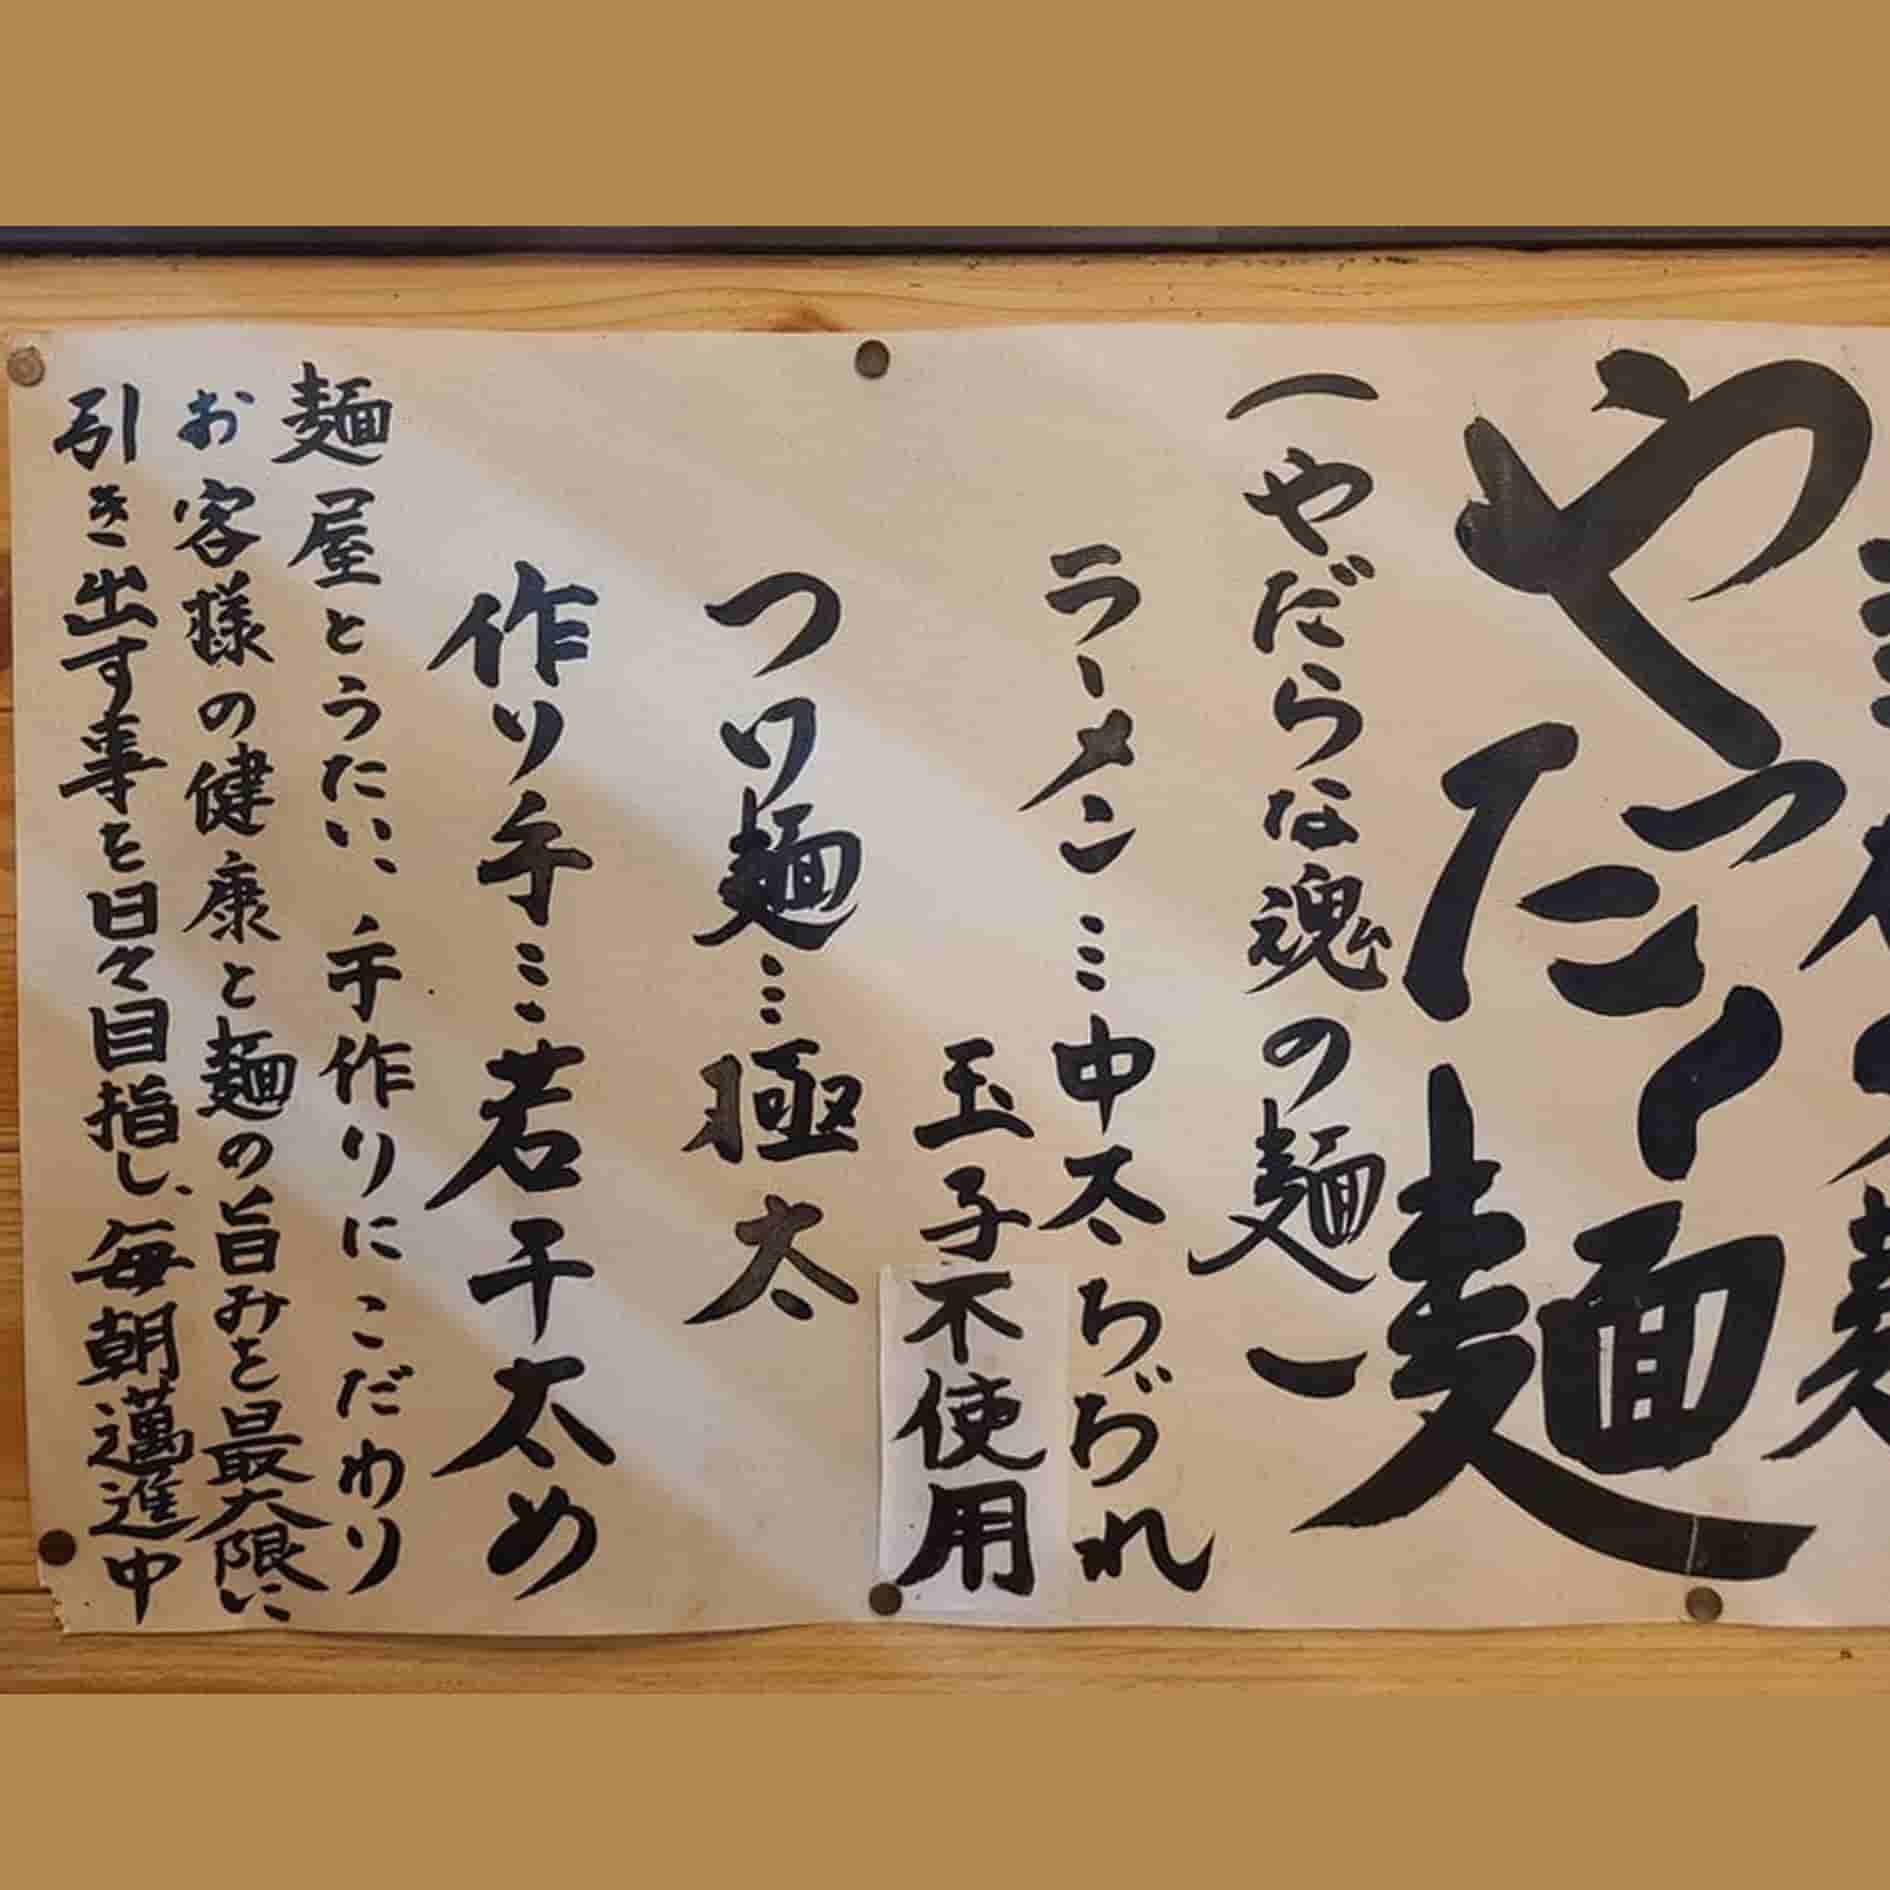 やったー麺
（やだらな魂の麺）
ラーメン…中太ちぢれ
玉子不使用
つけ麺…極太
作り手…若干太め
麺屋とうたい、手作りにこだわり
お客様の健康と麺の旨みを最大限に
引き出す事を日々目指し、毎朝邁進中